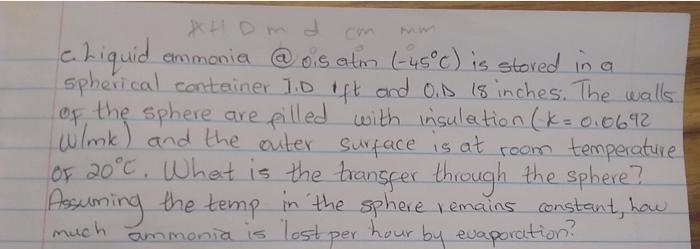 K H D m d cm mm
c. Liquid ammonia @ 0.5 atm (-45°C) is stored in a
spherical container I.D 1ft and O.D 18 inches. The walls
of the sphere are filled with insulation (k = 0.0692
W/mk) and the outer surface is at room temperature
of 20°C. What is the transfer through the sphere?
Assuming the temp in the sphere remains constant, how
much ammonia is lost per hour by evaporation?